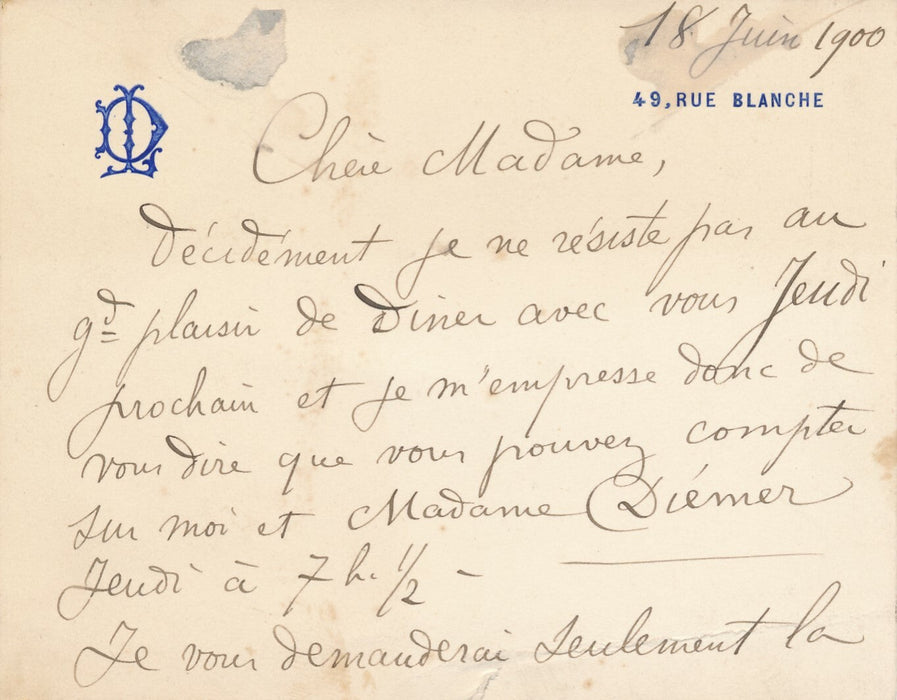 18 Juin 1900
49, RUE BLANCHE
Chère Madame,
Décidément je ne résiste pas au
gd plaisir de Diner avec vous Jeudi
prochain et je m'empresse donc de
vous dire que vous pouvez compter
sur moi et Madame Diémer
Jeudi à 7 h. 1/2 -
Je vous demanderai seulement la